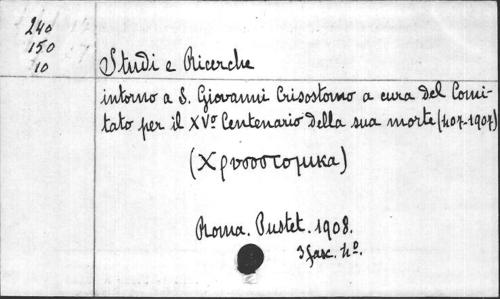 240
150
10
Studi e Ricerche
intorno a S. Giovanni Crisostomo a cura del Comi-
tato per il XVº Centenario della sua morte (407-1907)
(Χρυσοστομικα)
Roma. Pustet. 1908.
3 fasc. 4º.